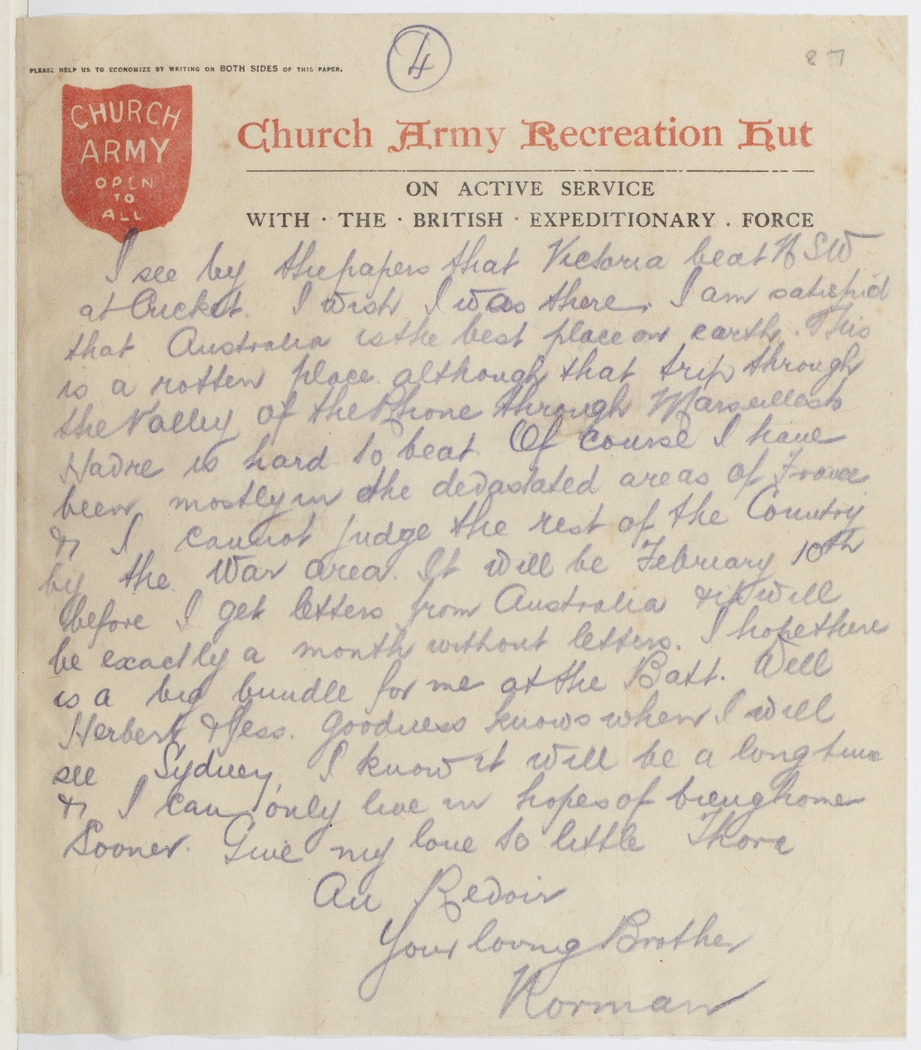 4
87
PLEASE HELP US TO ECONOMIZE BY WRITING ON BOTH SIDES OF THIS PAPER.
CHURCH
ARMY
OPEN
TO
ALL
Church Army Recreation Hut
ON ACTIVE SERVICE
WITH · THE · BRITISH · EXPEDITIONARY . FORCE
I see by the papers that Victoria beat N SW
at Cricket. I wish I was there. I am satisfied
that Australia is the best place on earth. This
is a rotten place although that trip through
the Valley of the Rhone through Marseilles to
Havre is hard to beat. Of course I have
been mostly in the devastated areas of France
& I cannot judge the rest of the Country
by the War area. It will be February 10th
before I get letters from Australia & it will
be exactly a month without letters. I hope there
is a big bundle for me at the Batt. Well
Herbert & Jess. Goodness knows when I will
see Sydney, I know it will be a long time
& I can only live in hopes of being home
sooner. Give my love to little Thora
Au Revoir
Your loving Brother
Norman